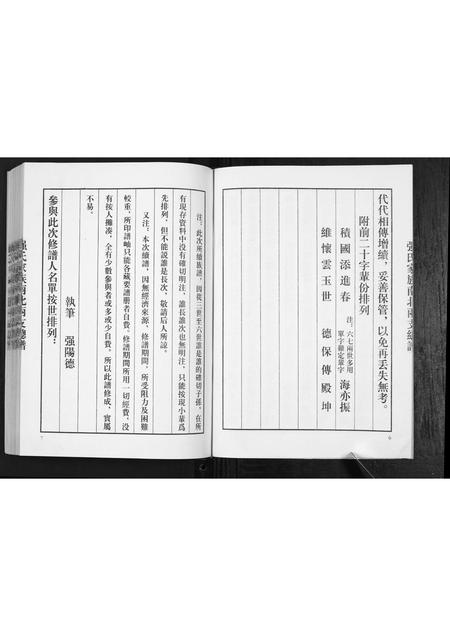 代代相傳增續，妥善保管，以免再丟失無考。
附前二十字輩份排列
積國添進春
注：六七兩世多用
單字難定輩字
海亦振
維懷雲玉世
德保傳殿坤
6
注：此次所續族譜，因從三世至六世誰是誰的確切子孫，在所
有現存資料中没有確切明注，誰長誰次也無明注，只能按現小輩爲
先排列，但不能説誰是長次，敬請后人所諒。
又注：本次續譜，因無經濟來源，修譜期間，所受阻力及困難
較重，所印譜岫只能各藏要譜册者自費。修譜期間所用一切經費，没
有按人攤凑，全有少數參與者或多或少自費。所以此譜修成，實屬
不易。
執筆 强陽德
參與此次修譜人名單按世排列：
7